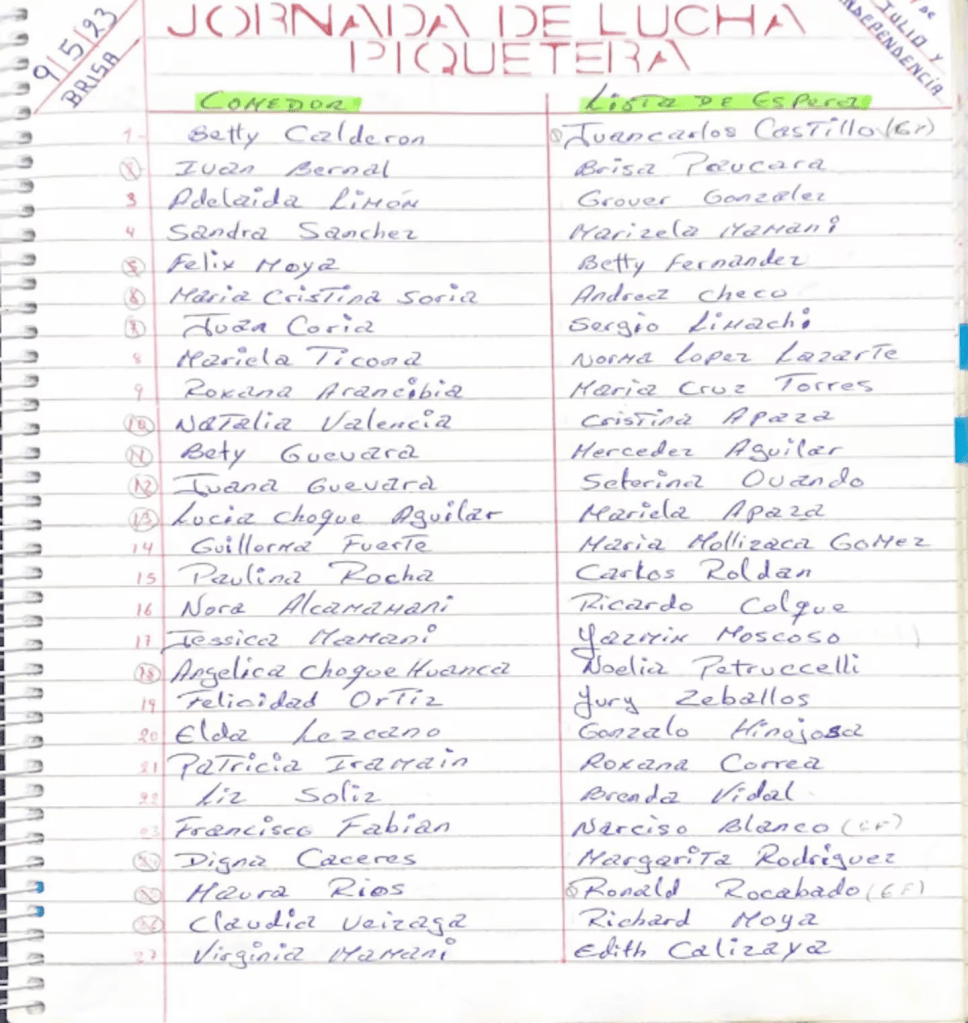 JORNADA DE LUCHA
PIQUETERA
9/5/23
BRISA
JULIO Y
INDEPENDENCIA
COMEDOR Lista DE Espera
1- Betty Calderon Juancarlos Castillo (EF)
2 Ivan Bernal Brisa Paucara
3 Adelaida Limón Grover Gonzalez
4 Sandra Sanchez Marizela Mamani
5 Felix Moya Betty Fernandez
6 Maria Cristina Soria Andrea Checo
7 Juan Coria Sergio Limachi
8 Mariela Ticona Norma Lopez Lazarte
9 Roxana Arancibia Maria Cruz Torres
10 Natalia Valencia Cristina Apaza
11 Bety Guevara Mercedez Aguilar
12 Juana Guevara Seterina Ovando
13 Lucia Choque Aguilar Mariela Apaza
14 Guillerma Fuerte Maria Mollizaca Gomez
15 Paulina Rocha Carlos Roldan
16 Nora Alcamamani Ricardo Colque
17 Jessica Mamani Yazmin Moscoso
18 Angelica Choque Huanca Noelia Petruccelli
19 Felicidad Ortiz Yury Zeballos
20 Elda Lezcano Gonzalo Hinojosa
21 Patricia Iramain Roxana Correa
22 Liz Soliz Brenda Vidal
23 Francisco Fabian Narciso Blanco (EF)
24 Digna Caceres Margarita Rodriguez
25 Maura Rios Ronald Rocabado (EF)
26 Claudia Veizaga Richard Moya
27 Virginia Mamani Edith Calizaya